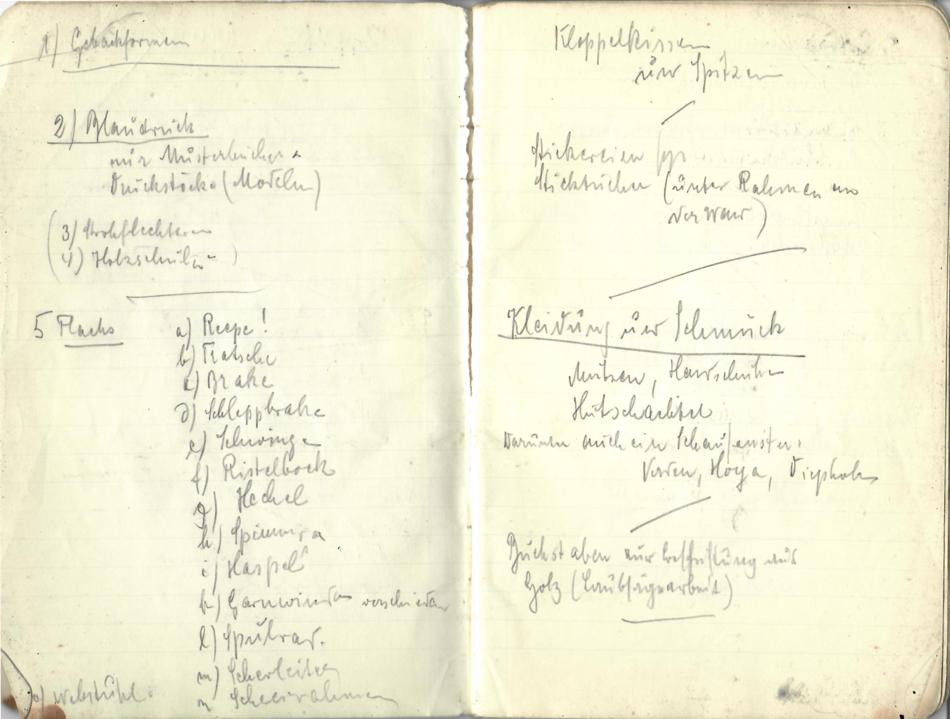 1) Gebäckformen
2) Blaudruck
nur Musterbücher
Druckstöcke (Modeln)
(3) Strohflechterei
(4) Holzschuh )
5 Flachs
a) Reepe!
b) Tratsche
c) Brake
d) Schleppbrake
e) Schwinge
f) Ristelbock
g) Hechel
h) Spinnra
i) Haspel
k) Garnwinde verschieden
l) Spulrad.
m) Scherleiter
n Scheerrahmen
o) Webstuhl.
Kloppelkissen
und Spitzen
Stickereien
Sticktücher (unter Rahmen
)
Kleidung und Schmuck
Mützen, Handschuhe
Hutschachtel
Darunter auch ein Schaufenster:
Verden, Hoya, Diepholz
Buchstaben zur aus
Holz (Laubsägearbeit)